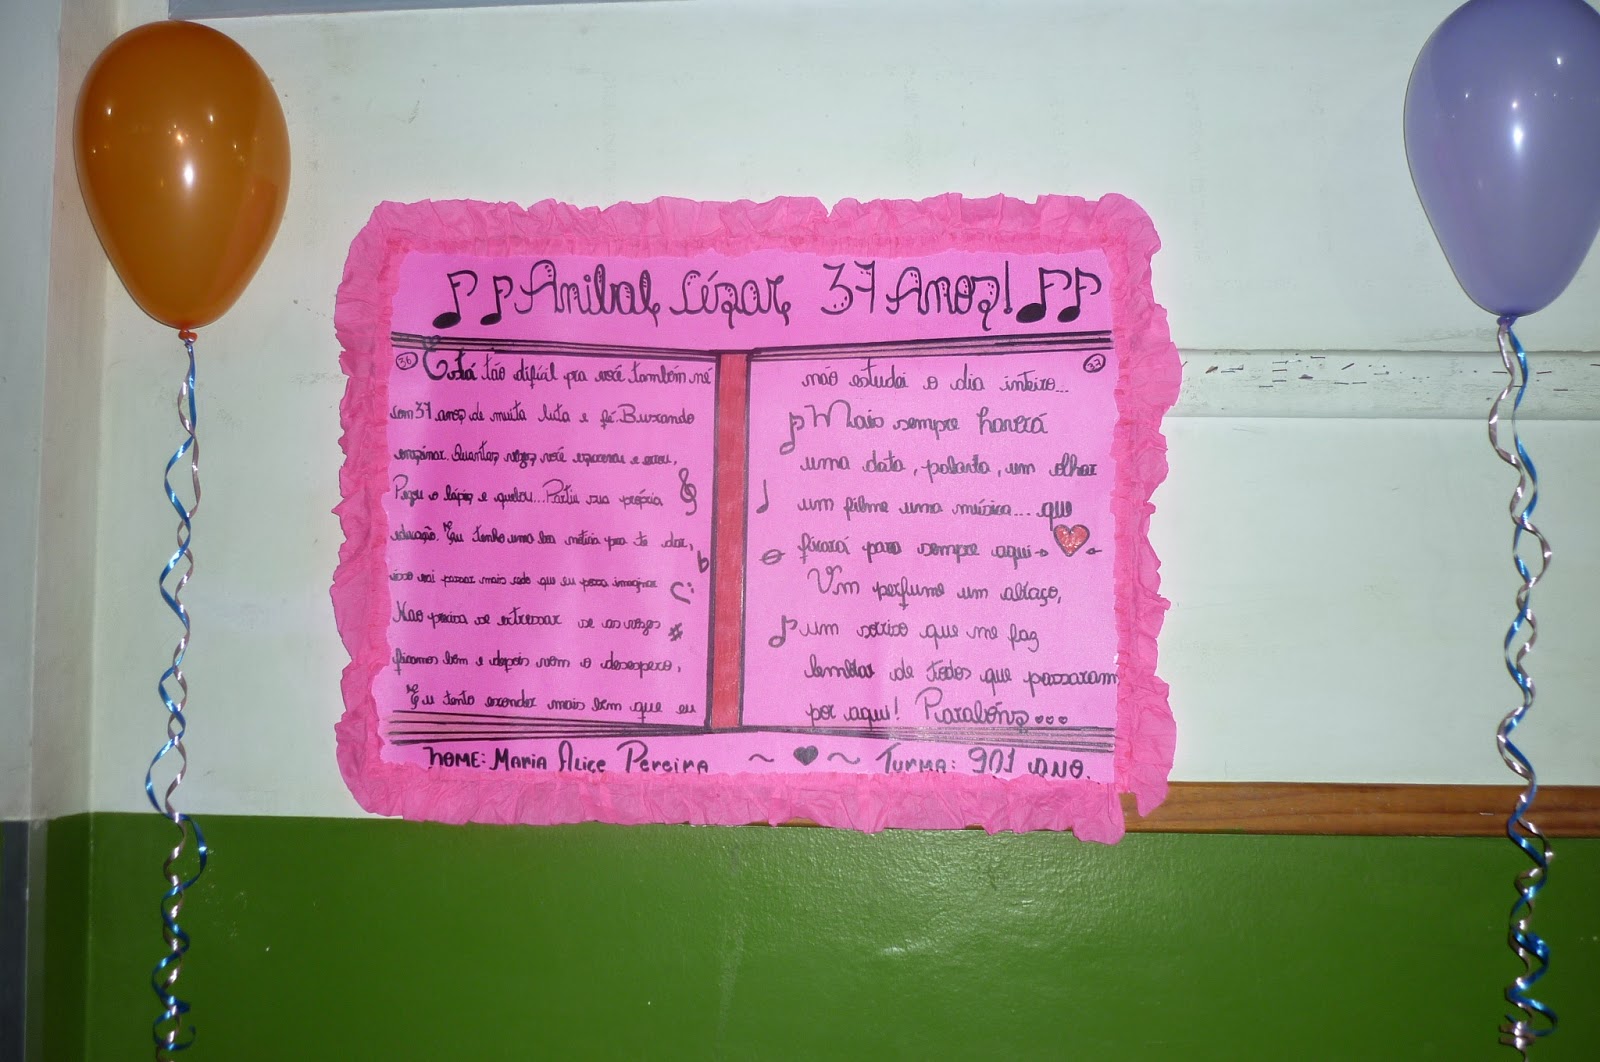 Anibal Cézar 37 Anos!
36
Está tão difícil pra você também né
com 37 anos de muita luta e fé. Buscando
ensinar. Quantas vezes você escreveu e errou,
Pegou o lápis e quebou... Partiu sua própria
educação. Eu tenho uma boa notícia pra te dar,
isso vai passar mais cedo que eu possa imaginar
Nao precisa se extressar se as vezes
ficamos bem e depois vem o desespero,
Eu tento esconder mais bem que eu
37
não estudei o dia inteiro...
Mais sempre haverá
uma data, palavra, um olhar
um filme uma música... que
ficará para sempre aqui
Um perfume um abraço,
um sorriso que me faz
lembrar de todos que passaram
por aqui! Parabéns...
Nome: Maria Alice Pereira ~ ~ Turma: 901 ano.